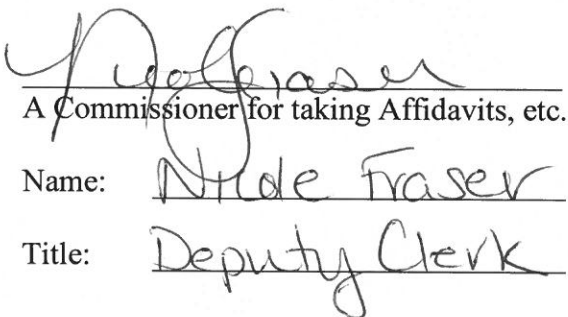 A Commissioner for taking Affidavits, etc.
Name: Nicole Fraser
Title: Deputy Clerk